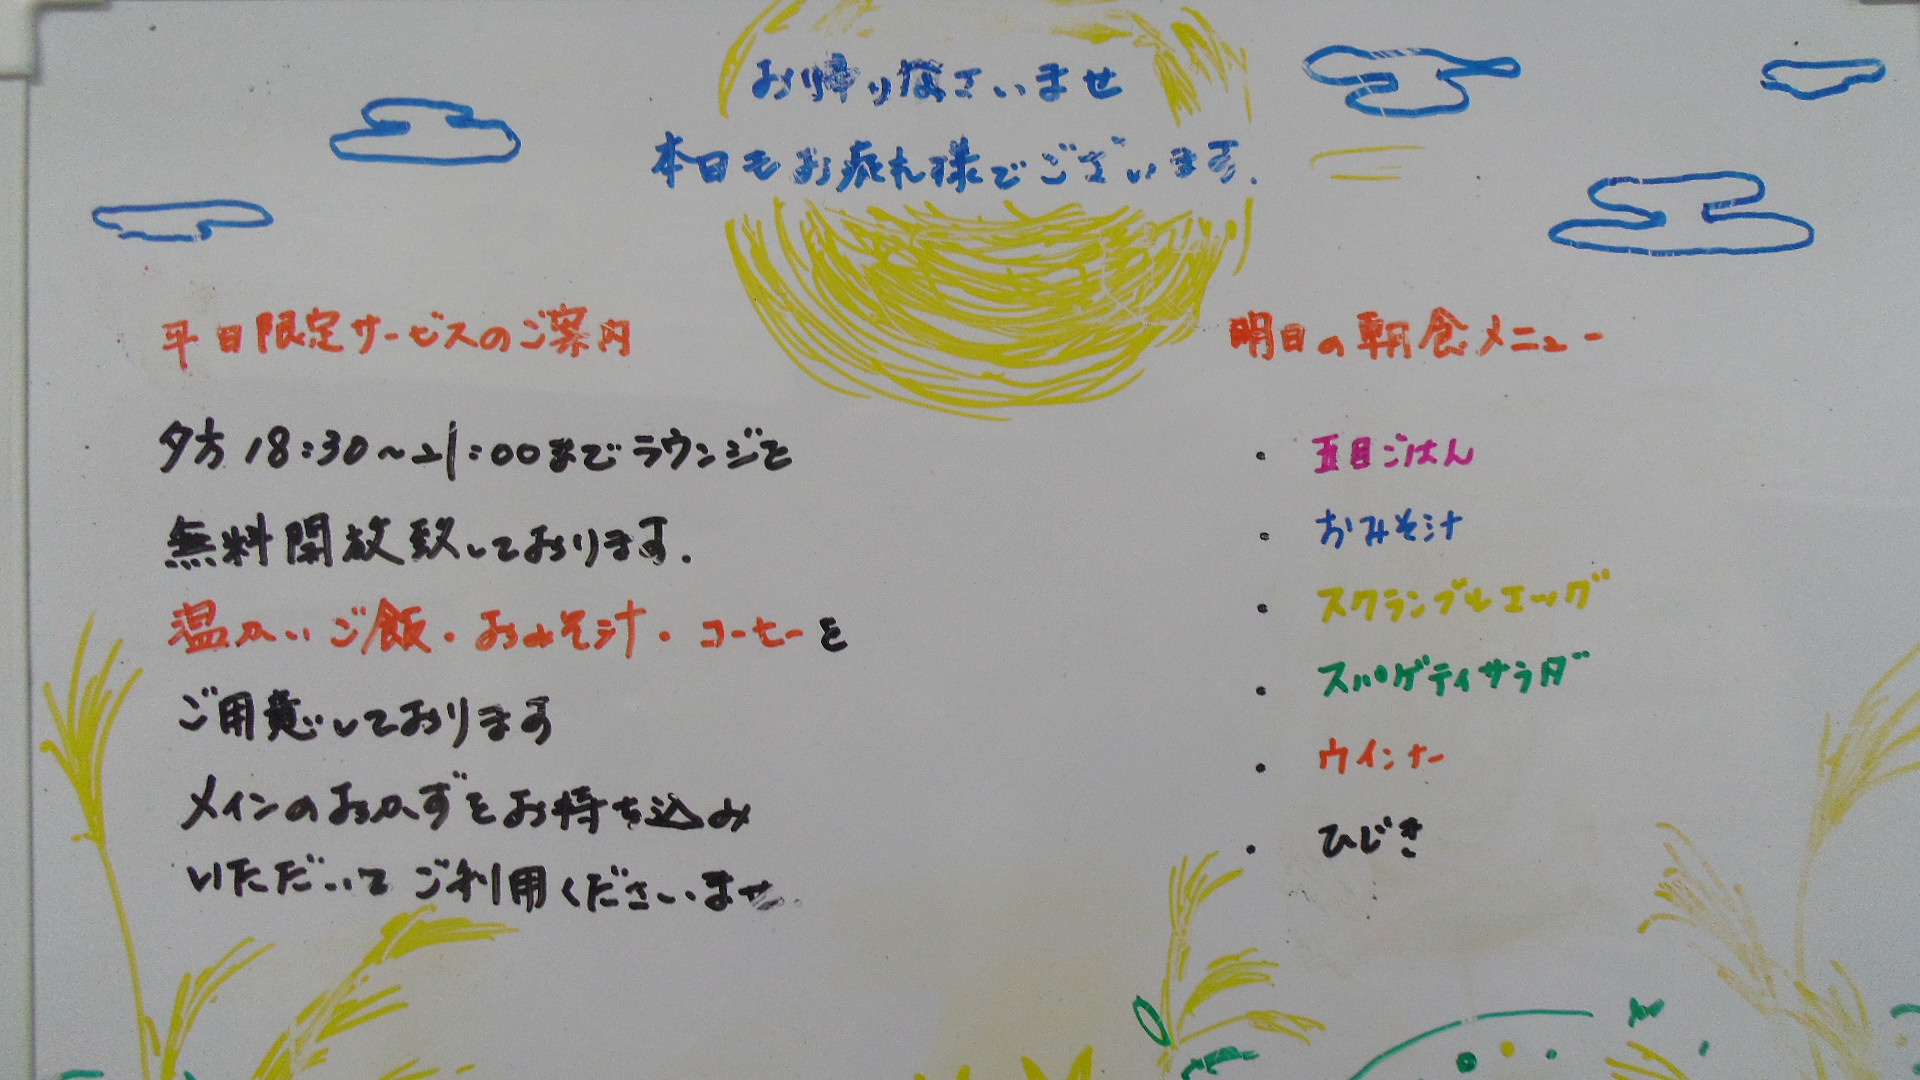 お帰りなさいませ
本日もお疲れ様でございます.
平日限定サービスのご案内
夕方 18:30～21:00までラウンジを
無料開放致しております.
温かいご飯・おみそ汁・コーヒーを
ご用意しております
メインのおかずをお持ち込み
いただいてご利用くださいませ.
明日の朝食メニュー
・ 五目ごはん
・ おみそ汁
・ スクランブルエッグ
・ スパゲティサラダ
・ ウインナー
・ ひじき